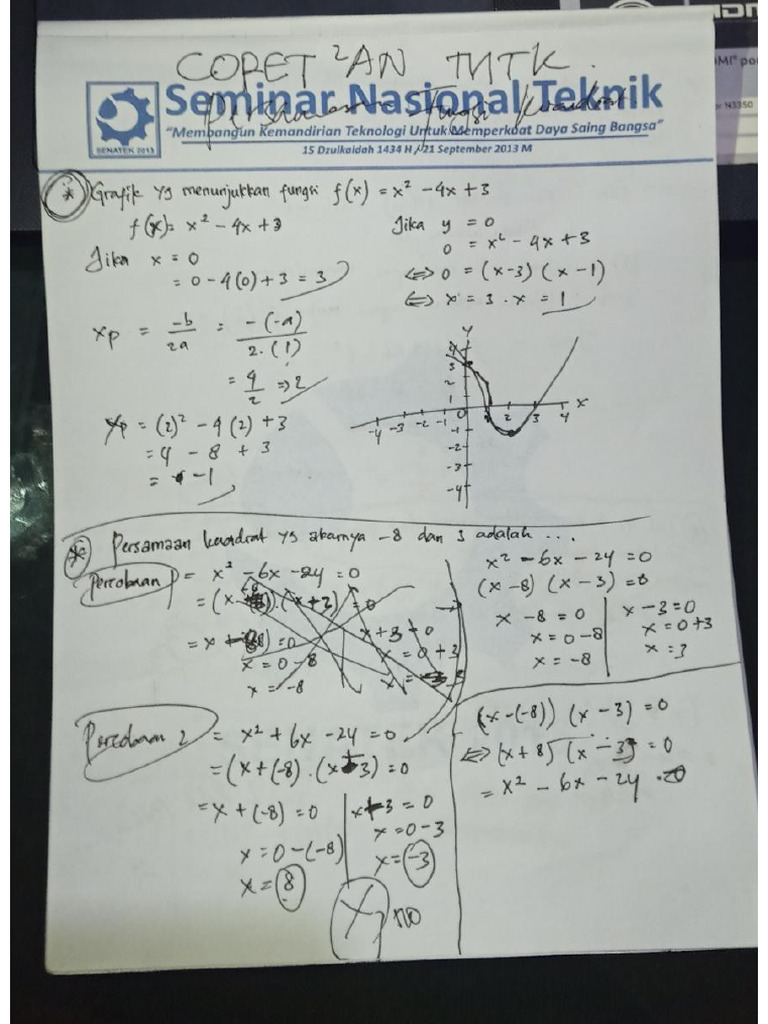 CORET ²AN MTK.
Seminar Nasional Teknik
Persamaan Fungsi Kuadrat
"Membangun Kemandirian Teknologi Untuk Memperkuat Daya Saing Bangsa"
SENATEK 2013
15 Dzulkaidah 1434 H / 21 September 2013 M
* Grafik yg menunjukkan fungsi f(x) = x² - 4x + 3
f(x) = x² - 4x + 3
Jika x = 0
= 0 - 4(0) + 3 = 3
Jika y = 0
0 = x² - 4x + 3
<=> 0 = (x-3) (x-1)
<=> x = 3 . x = 1
xp = -b/2a = -(-4)/2.(1)
= 4/2 => 2
yp = (2)² - 4(2) + 3
= 4 - 8 + 3
= -1
Y
4
3
2
1
-4 -3 -2 -1 0 1 2 3 4 X
-1
-2
-3
-4
* Persamaan kuadrat yg akarnya -8 dan 3 adalah ...
Percobaan = x² - 6x - 24 = 0
= (x ). (x+3) = 0
= x = 0
x = 0 - 8
x = -8
x + 3 = 0
x = 0 + 3
x = 3
x² - 6x - 24 = 0
(x - 8) (x - 3) = 0
x - 8 = 0
x = 0 - 8
x = -8
x - 3 = 0
x = 0 + 3
x = 3
Percobaan 2 = x² + 6x - 24 = 0
= (x + (-8) . (x + 3) = 0
= x + (-8) = 0
x = 0 - (-8)
x = 8
x + 3 = 0
x = 0 - 3
x = -3
X no
(x - (-8)) (x - 3) = 0
<=> (x + 8) (x - 3) = 0
= x² - 6x - 24 = 0
HDMI
N3350